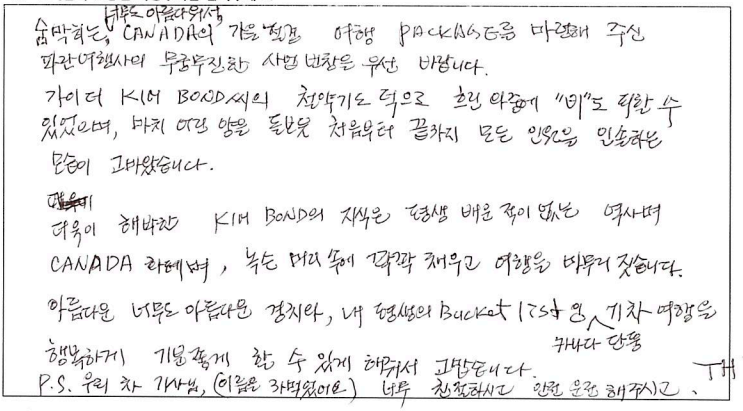 너무도 아름다워서
숨막히는, CANADA의 가을 절경 여행 PACKAGE를 마련해 주신
파란여행사의 무궁무진한 사업 번창을 우선 바랍니다.
가이더 KIM BOND씨의 철야기도 덕으로 흐린 와중에 "비"도 피할 수
있었으며, 마치 어린 양을 돌보듯 처음부터 끝까지 모든 인원을 인솔하는
모습이 고마왔습니다.
더욱이 해박한 KIM BOND의 지식은 평생 배운 적이 없는 역사며
CANADA 며, 녹슨 머리 속에 꽉꽉 채우고 여행을 마무리 짓습니다.
아름다운 너무도 아름다운 경치와, 내 평생의 Bucket list인 기차 여행을
카나다 단풍
행복하게 기분좋게 할 수 있게 해줘서 고맙습니다.
P.S. 우리 차 기사님, (이름을 까먹었어요) 너무 친절하시고 안전 운전 해주시고. TH